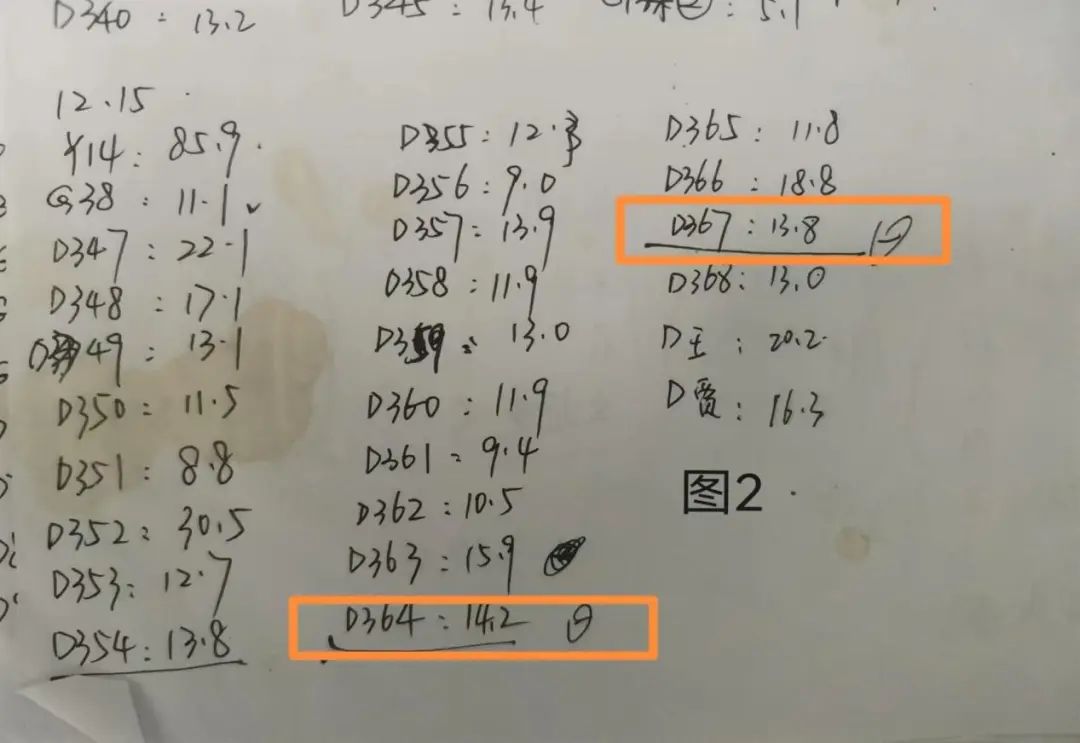 D340 : 13.2
D345 : 13.4
: 5.1
12.15
Y14 : 85.9
G38 : 11.1 ✓
D347 : 22.1
D348 : 17.1
D349 : 13.1
D350 : 11.5
D351 : 8.8
D352 : 30.5
D353 : 12.7
D354 : 13.8
D355 : 12.3
D356 : 9.0
D357 : 13.9
D358 : 11.9
D359 : 13.0
D360 : 11.9
D361 : 9.4
D362 : 10.5
D363 : 15.9
D364 : 14.2
D365 : 11.8
D366 : 18.8
D367 : 13.8
D368 : 13.0
D王 : 20.2
D贾 : 16.3
图2